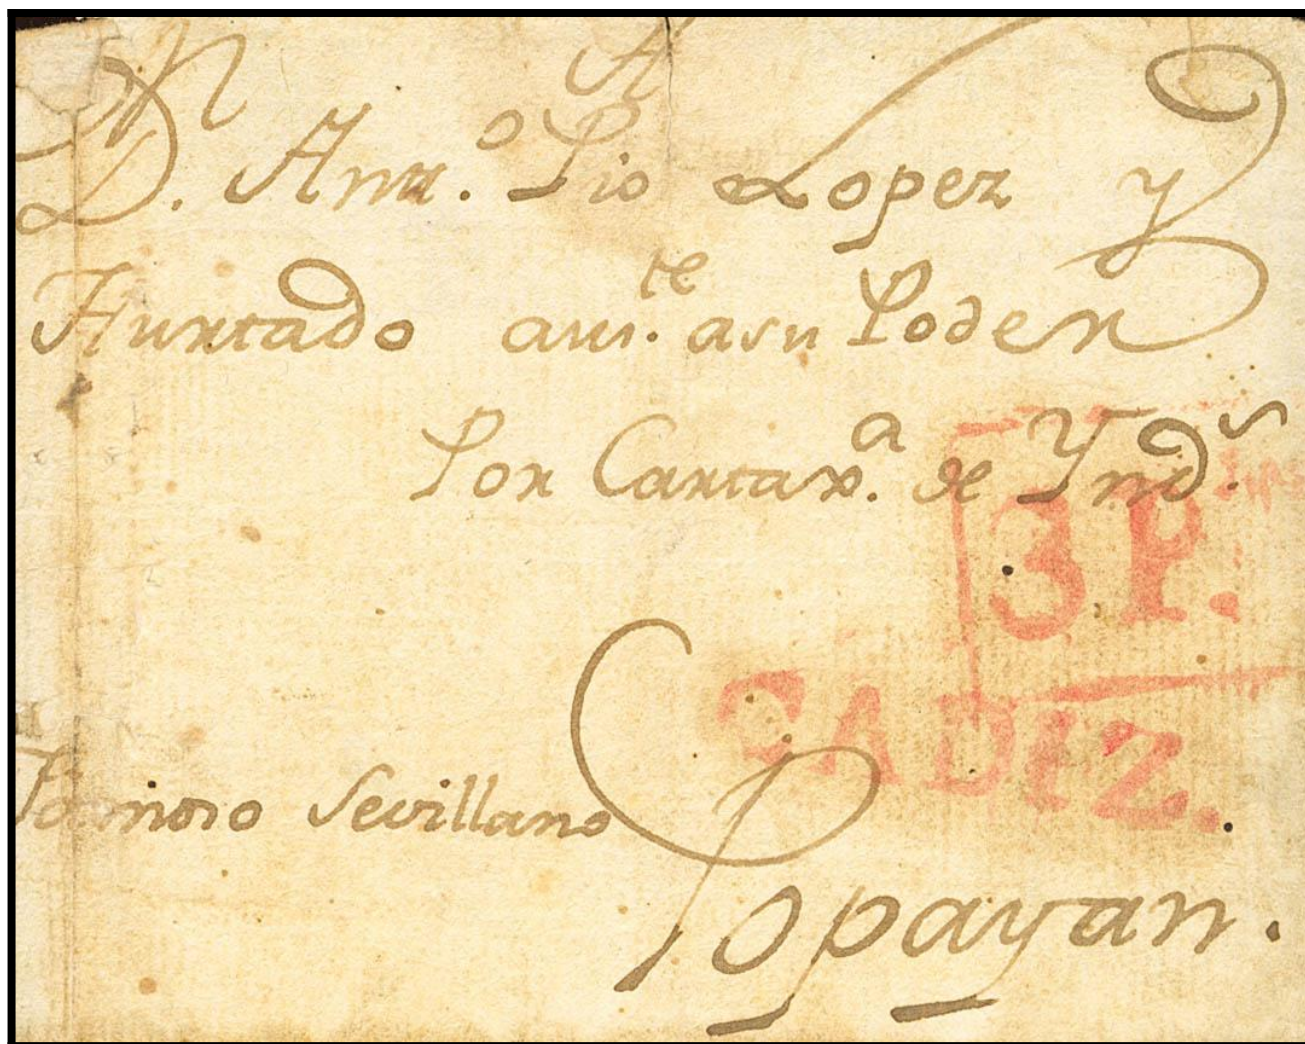 A
D. Anto. Pio Lopez y
Hurtado aute. a su Poder
Por Cartaxa. de Ynds.
3P.
CADIZ.
Sevillano
Popayan.